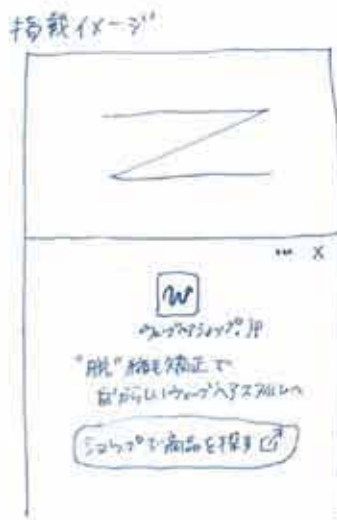 掲載イメージ
Z
… ×
w
ウェーブヘアショップ.jp
"脱"縮毛矯正で
自分らしいウェーブヘアスタイルへ
ショップで商品を探す